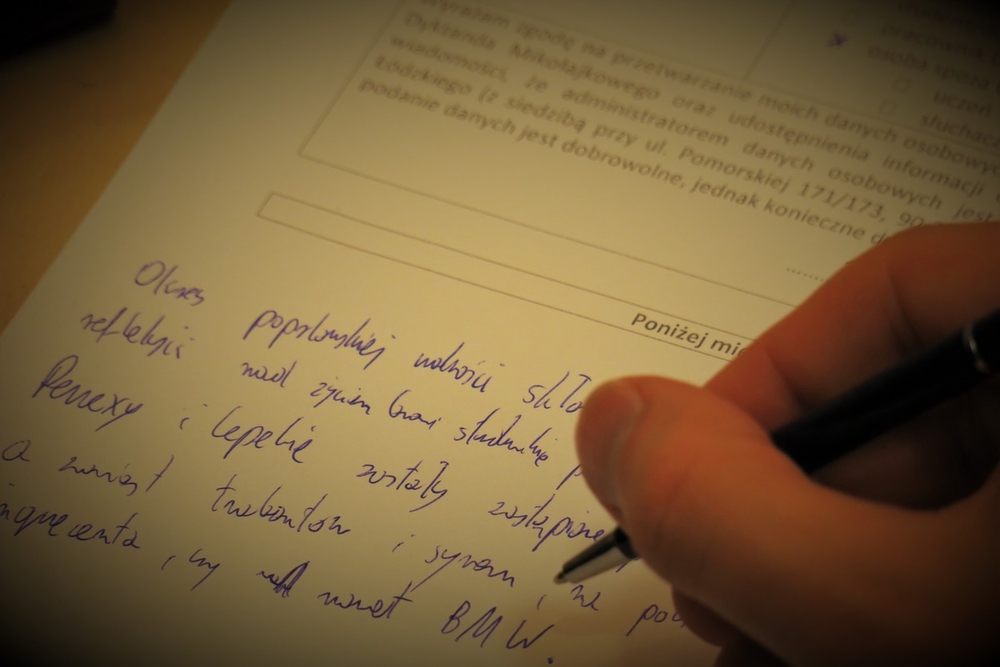 Wyrażam zgodę na przetwarzanie moich danych osobowych
Dyktanda Mikołajkowego oraz udostępnienia informacji
wiadomości, że administratorem danych osobowych jest
Łódzkiego (z siedzibą przy ul. Pomorskiej 171/173, 90
podanie danych jest dobrowolne, jednak konieczne d
osoba spoza
uczeń
słuchacz
Poniżej mi
Okres popsłowskiej wolności skło
refleksji nad życiem braci studenckiej
Penexy i lepekię zostały zastąpione
a zamiast trabantów i syren, na pod
, czy nawet BMW.